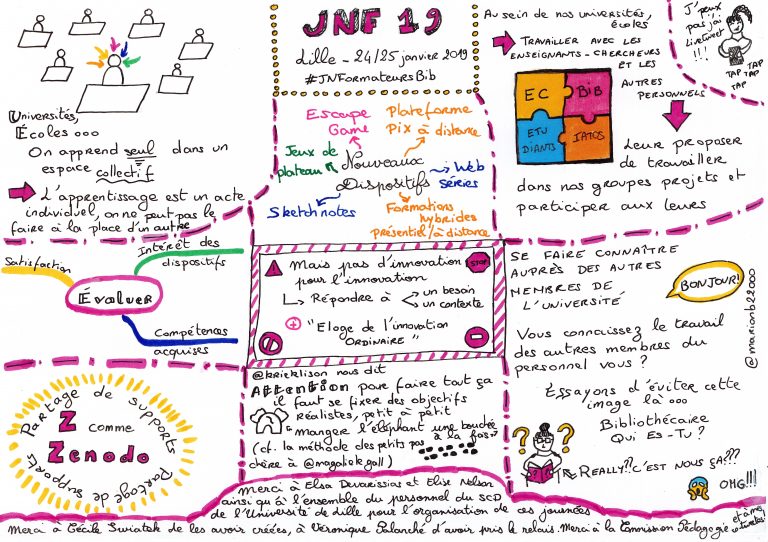 JNF 19
Lille - 24/25 janvier 2019
#JNFormateursBib
Universités,
Écoles ooo
On apprend seul dans un
espace collectif
L'apprentissage est un acte
individuel, on ne peut pas le
faire à la place d'un autre
Escape
Game
Plateforme
Pix à distance
Jeux de
plateau
Nouveaux
Dispositifs
Web
Séries
Sketchnotes
Formations
hybrides
Présentiel/à distance
Au sein de nos universités,
écoles
Travailler avec les
enseignants-chercheurs
et les
autres
personnels
EC
BIB
ETU
DIANTS
IATOS
Leur proposer
de travailler
dans nos groupes projets et
participer aux leurs
J'peux
pas j'ai
livetweet
!!!
TAP TAP
TAP TAP
TAP
Satisfaction
Intérêt des
dispositifs
Évaluer
Compétences
acquises
Mais pas d'innovation
pour l'innovation
STOP
Répondre à
un besoin
un contexte
"Eloge de l'innovation
ordinaire"
SE FAIRE CONNAÎTRE
AUPRÈS DES AUTRES
MEMBRES DE
L'UNIVERSITÉ
BONJOUR!
Vous connaissez le travail
des autres membres du
personnel vous ?
Essayons d'éviter cette
image là ooo
Bibliothécaire
Qui es-tu ?
? ?
Really?? c'est nous ça???
OMG!!!
@marionb22000
Partage de supports
Z
comme
Zenodo
Partage de supports
@krieklison nous dit
Attention pour faire tout ça
il faut se fixer des objectifs
réalistes, petit à petit
manger l'éléphant une bouchée
à la fois
(cf. la méthode des petits pas
chère à @magaliekgall)
Merci à Elsa Devarissias et Elise Nelson
ainsi qu'à l'ensemble du personnel du SCD
de l'Université de Lille pour l'organisation de ces journées
Merci à Cécile Swiatek de les avoir créées, à Véronique Palanché d'avoir pris le relais. Merci à la Commission Pédagogie